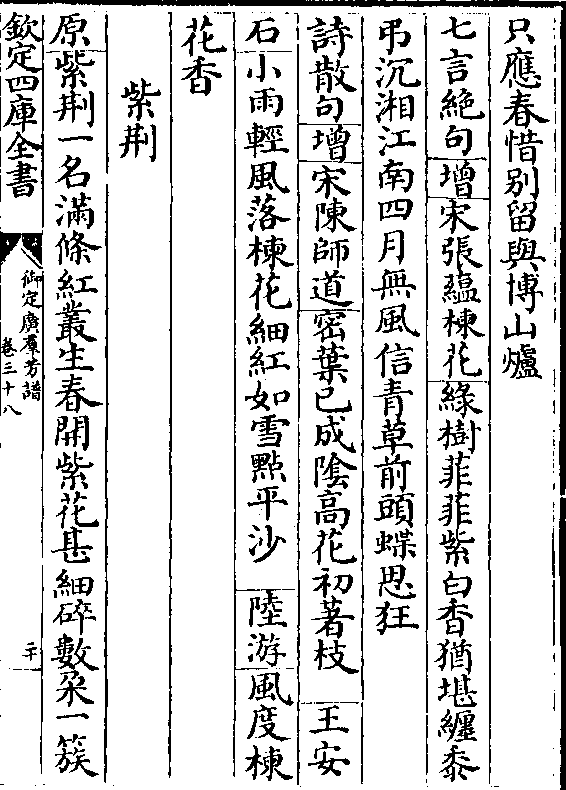 只應春惜别留與博山爐
七言絶句增宋張蘊楝花緑樹菲菲紫白香猶堪纒黍
弔沉湘江南四月無風信青草前頭蝶思狂
詩散句增宋陳師道密葉已成隂高花初著枝　王安
石小雨輕風落楝花細紅如雪㸃平沙　陸游風度楝
花香
紫荆
原紫荆一名滿條紅叢生春開紫花甚細碎數朶一簇
欽定四庫全書
御定廣羣芳譜
卷三十八
二十